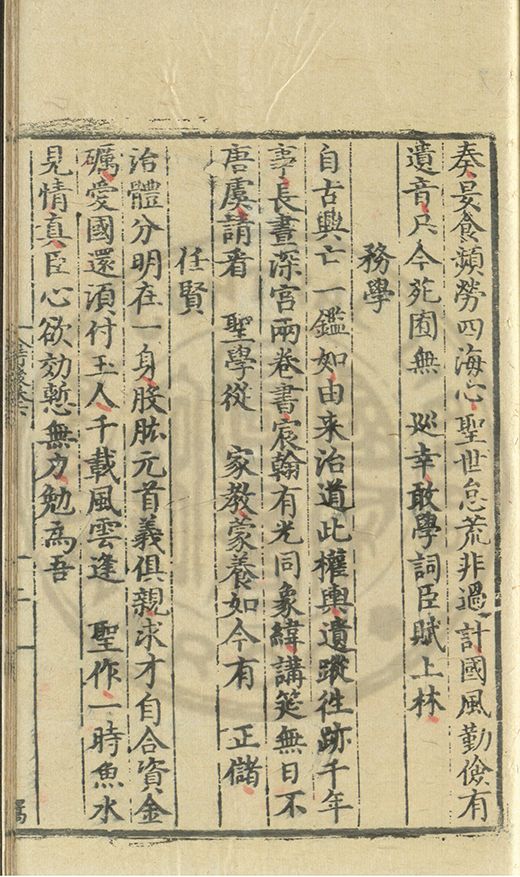 奏晏食頻勞四海心聖世怠荒非過計國風勤儉有
遺音只今苑囿無　巡幸敢學詞臣賦上林
務學
自古興亡一鑑如由来治道此權輿遺蹤徃跡千年
事長晝深宮兩卷書宸翰有光同象緯講筵無日不
唐虞請看　聖學從　家教蒙養如今有　正儲
任賢
治體分明在一身股肱元首義俱親求才自合資金
礪愛國還湏付玉人千載風雲逢　聖作一時魚水
見情真臣心欲効慙無力勉爲吾